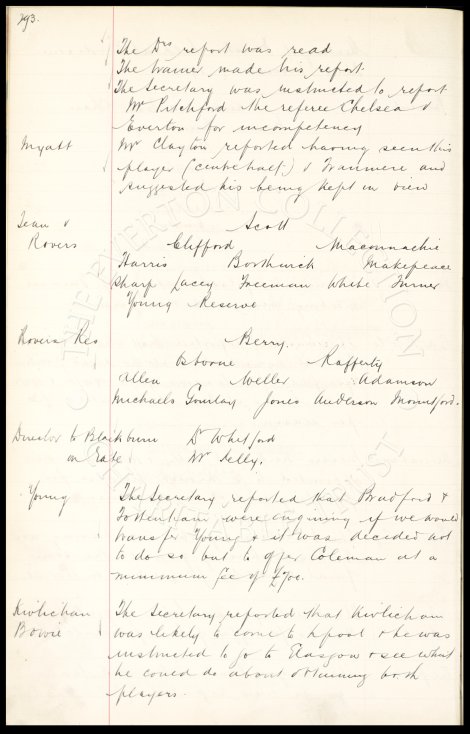 293.
The Drs report was read
The trainer made his report.
The Secretary was instructed to report
Mr Pitchford the referee Chelsea v
Everton for incompetency
Myatt Mr Clayton reported having seen this
player (centrehalf) v Tranmere and
suggested his being kept in view
Team v Scott
Rovers Clifford Maconnachie
Harris Borthwick Makepeace
Sharp Lacey Freeman White Turner
Young Reserve
Rovers Res Berry.
Osborne Rafferty
Allen Weller Adamson
Michaels Gourlay Jones Anderson Mountford.
Director to Blackburn Dr Whitford
Mr Kelly.
Young The Secretary reported that Bradford &
Tottenham were enquiring if we would
transfer Young & it was decided not
to do so but to offer Coleman at a
minimum fee of £700.
Kivlichan The Secretary reported that Kivlichan
Bowie was likely to come to Lpool & he was
instructed to go to Glasgow & see what
he could do about obtaining both
players.
THE EVERTON COLLECTION